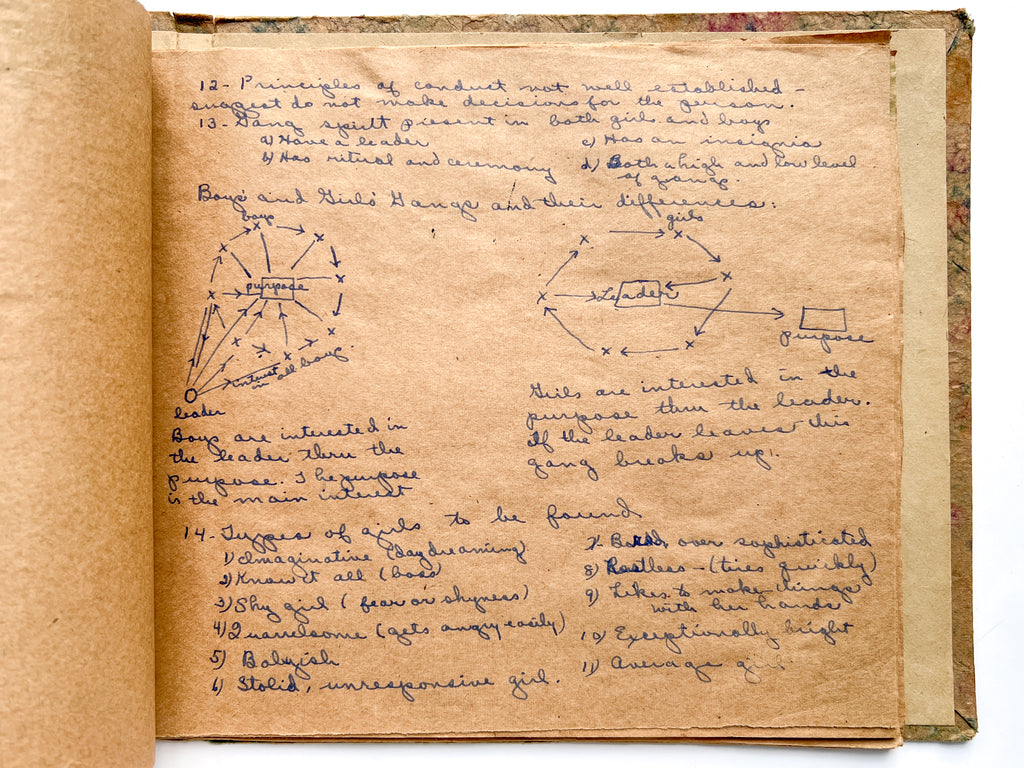 12- Principles of conduct not well established -
suggest do not make decisions for the person.
13- Gang spirit present in both girls and boys
a) Have a leader
b) Has ritual and ceremony
c) Has an insignia
d) Both a high and low level
of gangs.
Boys' and Girls' Gangs and their differences:
boys
purpose
interest
in all boys.
leader
Boys are interested in
the leader thru the
purpose. The purpose
is the main interest
girls
Leader
purpose
Girls are interested in the
purpose thru the leader.
If the leader leaves this
gang breaks up.
14- Types of girls to be found
1) Imaginative (day dreaming)
2) Know it all (boss)
3) Shy girl (fear or shyness)
4) Quarrelsome (gets angry easily)
5) Babyish
6) Stolid, unresponsive girl.
7) Bold, over sophisticated
8) Restless - (tires quickly)
9) Likes to make things
with her hands
10) Exceptionally bright
11) Average girl.